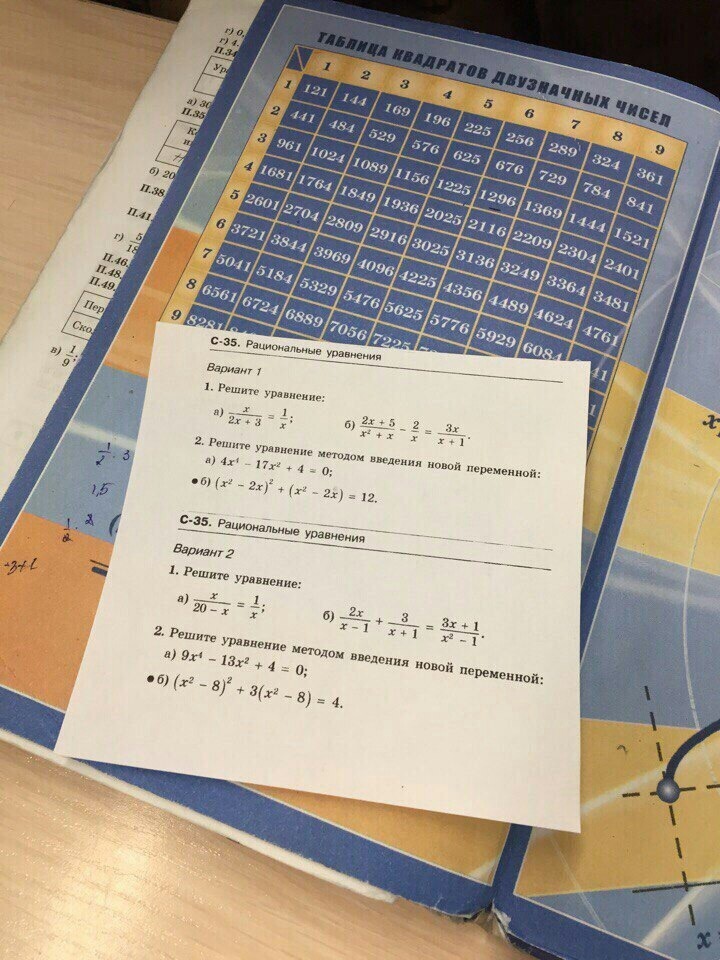 г) 0,
г) 4.
П.34
а) 30
П.35
б) 20
П.38
П.41.
г) 5/18
П.46.
П.48.
П.49.
Пер
Ско
в) 1/9;
1/2 · 3
1,5
1/2 · 2
-3+1
ТАБЛИЦА КВАДРАТОВ ДВУЗНАЧНЫХ ЧИСЕЛ
1 2 3 4 5 6 7 8 9
1 121 144 169 196 225 256 289 324 361
2 441 484 529 576 625 676 729 784 841
3 961 1024 1089 1156 1225 1296 1369 1444 1521
4 1681 1764 1849 1936 2025 2116 2209 2304 2401
5 2601 2704 2809 2916 3025 3136 3249 3364 3481
6 3721 3844 3969 4096 4225 4356 4489 4624 4761
7 5041 5184 5329 5476 5625 5776 5929 6084
8 6561 6724 6889 7056 7225
9 8281
С-35. Рациональные уравнения
Вариант 1
1. Решите уравнение:
а) x/(2x + 3) = 1/x; б) (2x + 5)/(x² + x) − 2/x = 3x/(x + 1).
2. Решите уравнение методом введения новой переменной:
а) 4x⁴ − 17x² + 4 = 0;
• б) (x² − 2x)² + (x² − 2x) = 12.
С-35. Рациональные уравнения
Вариант 2
1. Решите уравнение:
а) x/(20 − x) = 1/x; б) 2x/(x − 1) + 3/(x + 1) = (3x + 1)/(x² − 1).
2. Решите уравнение методом введения новой переменной:
а) 9x⁴ − 13x² + 4 = 0;
• б) (x² − 8)² + 3(x² − 8) = 4.